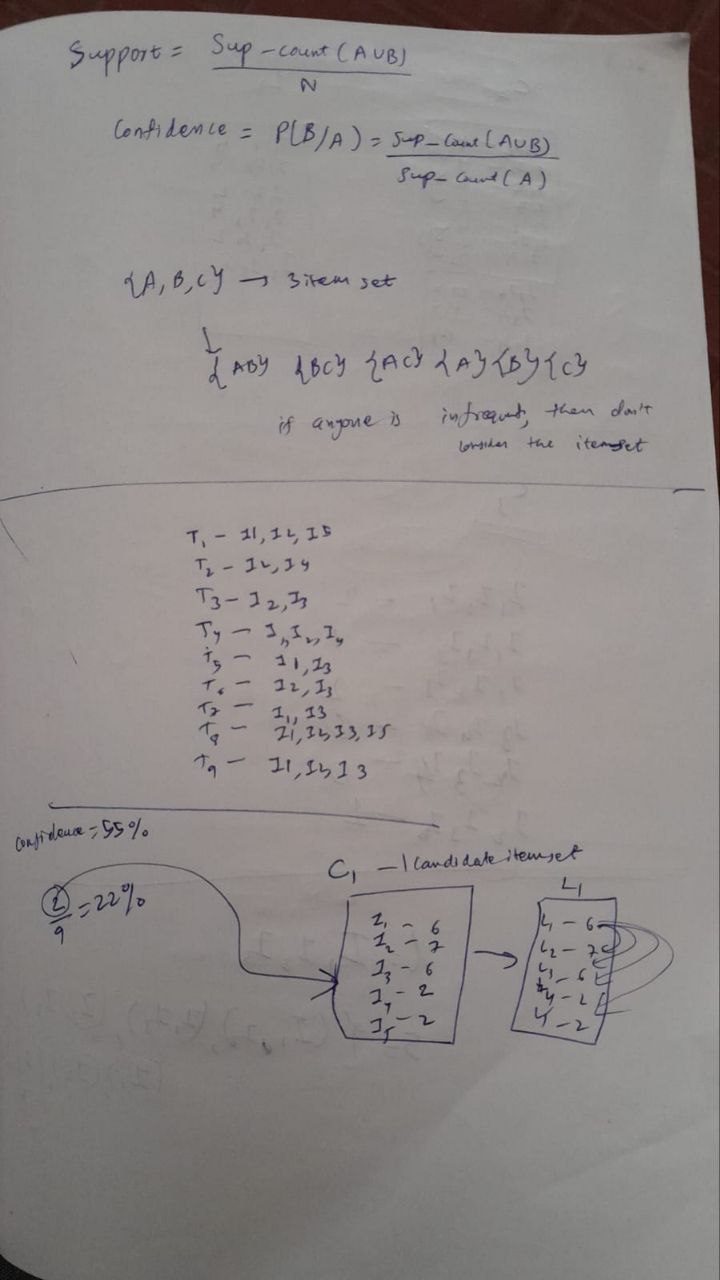 Support = Sup-count(A∪B)
N
Confidence = P(B/A) = Sup-Count(A∪B)
Sup-Count(A)
{A, B, C} → 3 item set
↓
{AB} {BC} {AC} {A} {B} {C}
if anyone is infrequent, then don't
consider the itemset
T1 - I1, I2, I5
T2 - I2, I4
T3 - I2, I3
T4 - I1, I2, I4
T5 - I1, I3
T6 - I2, I3
T7 - I1, I3
T8 - I1, I2, I3, I5
T9 - I1, I2, I3
Confidence = 55%
2/9 = 22%
C1 - 1 Candidate itemset
I1 - 6
I2 - 7
I3 - 6
I4 - 2
I5 - 2
L1
- 6
- 7
- 6
- 2
- 2